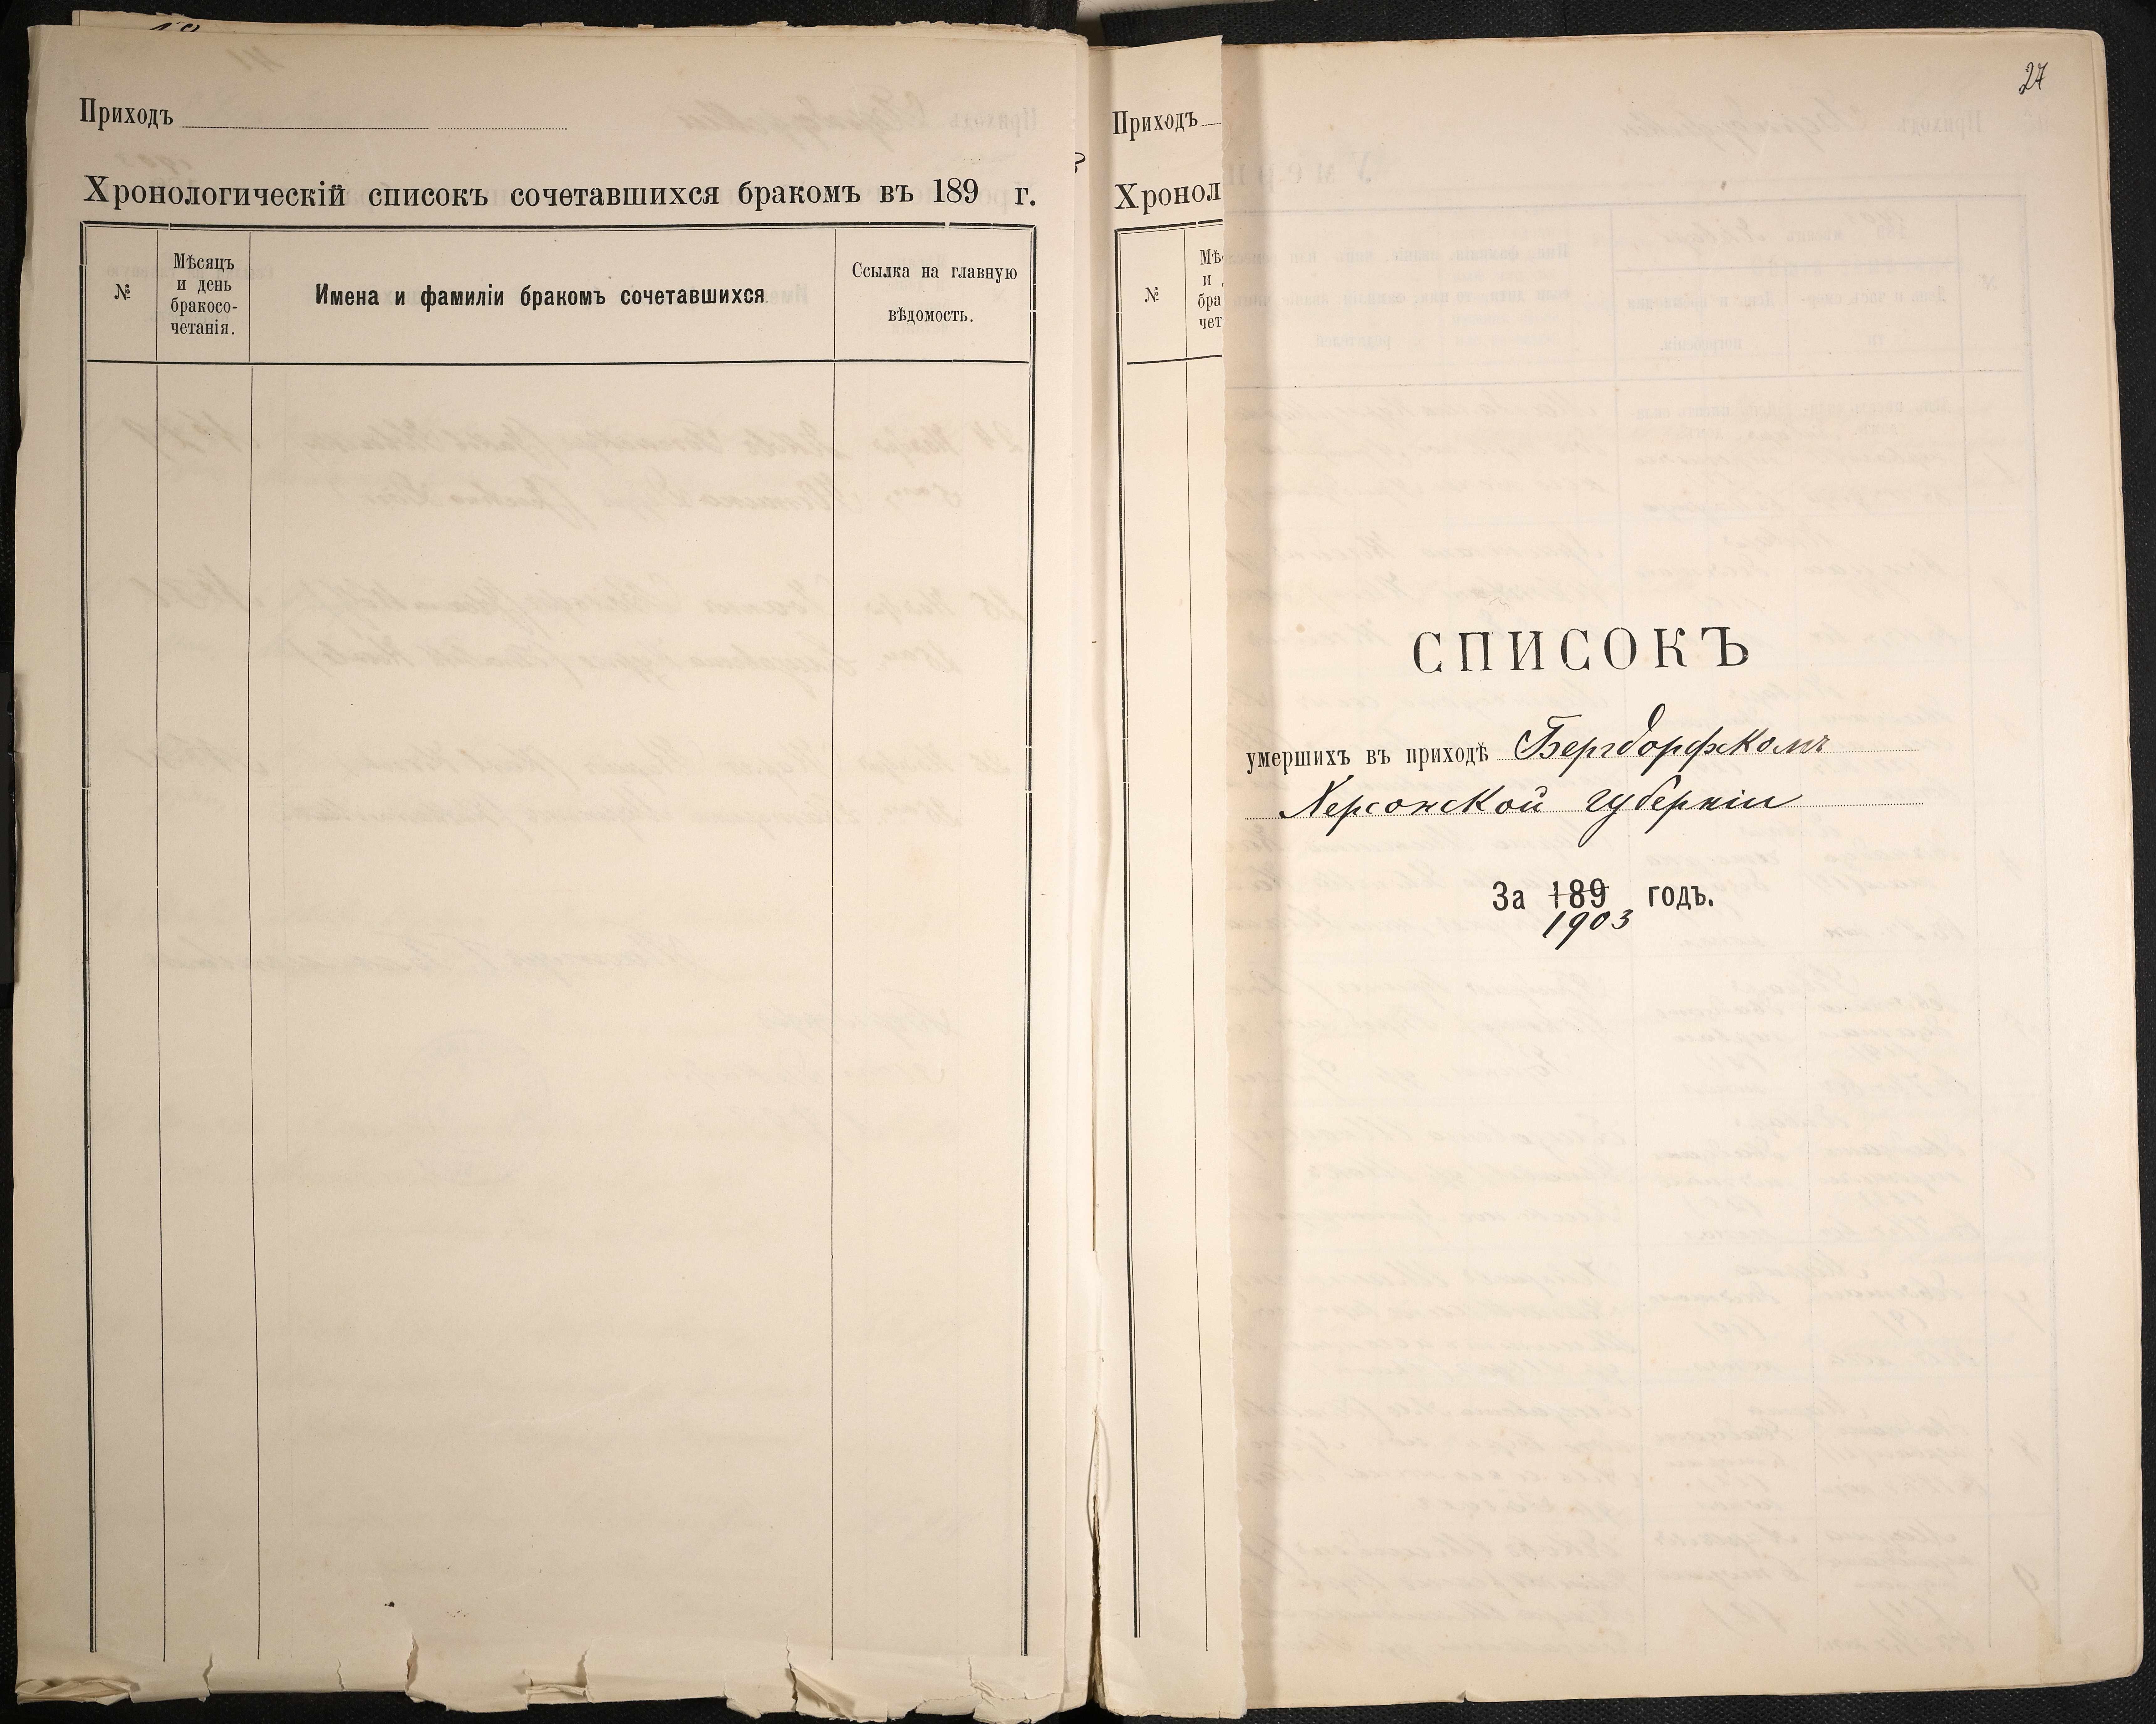 Приходъ
Хронологическій списокъ сочетавшихся бракомъ въ 189 г.
№
Мѣсяцъ
и день
бракосо-
четанія.
Имена и фамиліи бракомъ сочетавшихся
Ссылка на главную
вѣдомость.
Приходъ
Хронол
№
Мѣ
и
бра
чет
27
СПИСОКЪ
умершихъ въ приходѣ Бергдорфскомъ
Херсонской губерніи
За 189 годъ.
1903